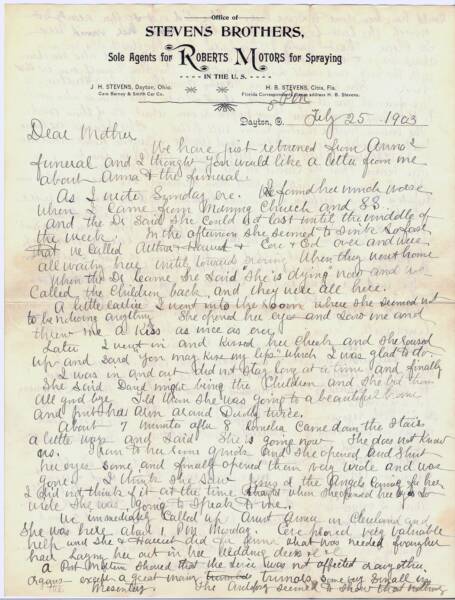 Office of
STEVENS BROTHERS,
Sole Agents for ROBERTS MOTORS for Spraying
IN THE U.S.
J. H. STEVENS, Dayton, Ohio.
Care Barney & Smith Car Co.
H. B. STEVENS, Citra, Fla.
Florida Correspondents please address H. B. Stevens.
8 PM
Dayton, O. July 25 1903
Dear Mother
We have just returned from Anna's
funeral and I thought you would like a letter from me
about Anna & the funeral.
As I wrote Sunday eve. I found her much worse
when I came from Morning Church and SS.
and the Dr said she could not last until the middle of
the week. In the afternoon she seemed to sink so fast
that we called Arthur & Harriet & Core & Ed over and were
all waiting here until towards evening when they went home
When the Dr came she said she is dying now and we
Called the Children back and they were all here.
A little earlier I went into the Room where she seemed not
to be noticing anything She opened her eyes and saw me and
threw me a Kiss as nice as ever
Later I went in and kissed her cheek and she
up and said you may kiss my lips which I was glad to do.
I was in and out did not stay long at a time and finally
She said David might bring the Children and she bid them
all good bye. Told them she was going to a beautiful home
and put her arm around twice.
About 7 minutes after 8 Cornelia came down the stairs
a little ways and said She is going now She does not know
us. I ran to her room quick and she opened and shut
her eyes some and finally opened them very wide and was
gone. I think she saw Jesus or the Angels coming for her
I did not think of it at the time thought when she opened her eyes so
wide she was going to speak to me.
We immediately called up Aunt in Cleveland and
She was here about 1 PM Monday. Core proved very valuable
help and she & Harriet did for Anna what was needed
hair Laying her out in her Wedding dress &c &c
A Post Mortem showed that the liver was not affected or any other
Organs except a great many tumors some very small in
Mesentery. The showed that nothing